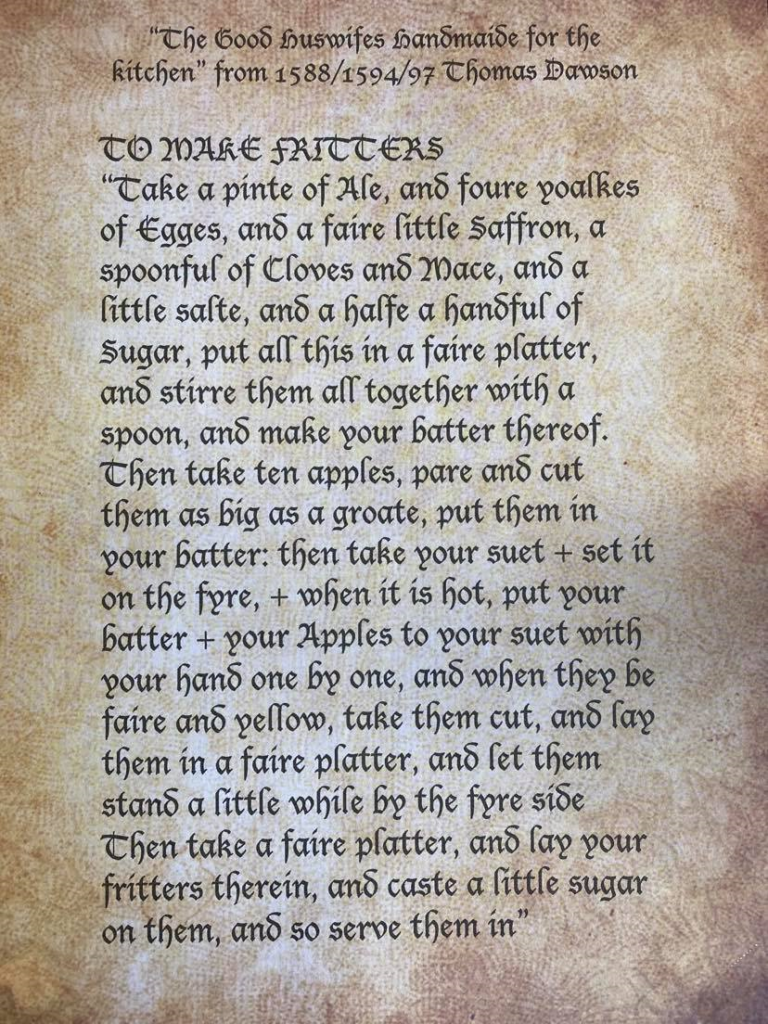 "The Good Huswifes Handmaide for the
kitchen" from 1588/1594/97 Thomas Dawson
TO MAKE FRITTERS
"Take a pinte of Ale, and foure yoalkes
of Egges, and a faire little Saffron, a
spoonful of Cloves and Mace, and a
little salte, and a halfe a handful of
Sugar, put all this in a faire platter,
and stirre them all together with a
spoon, and make your batter thereof.
Then take ten apples, pare and cut
them as big as a groate, put them in
your batter: then take your suet + set it
on the fyre, + when it is hot, put your
batter + your Apples to your suet with
your hand one by one, and when they be
faire and yellow, take them cut, and lay
them in a faire platter, and let them
stand a little while by the fyre side
Then take a faire platter, and lay your
fritters therein, and caste a little sugar
on them, and so serve them in"